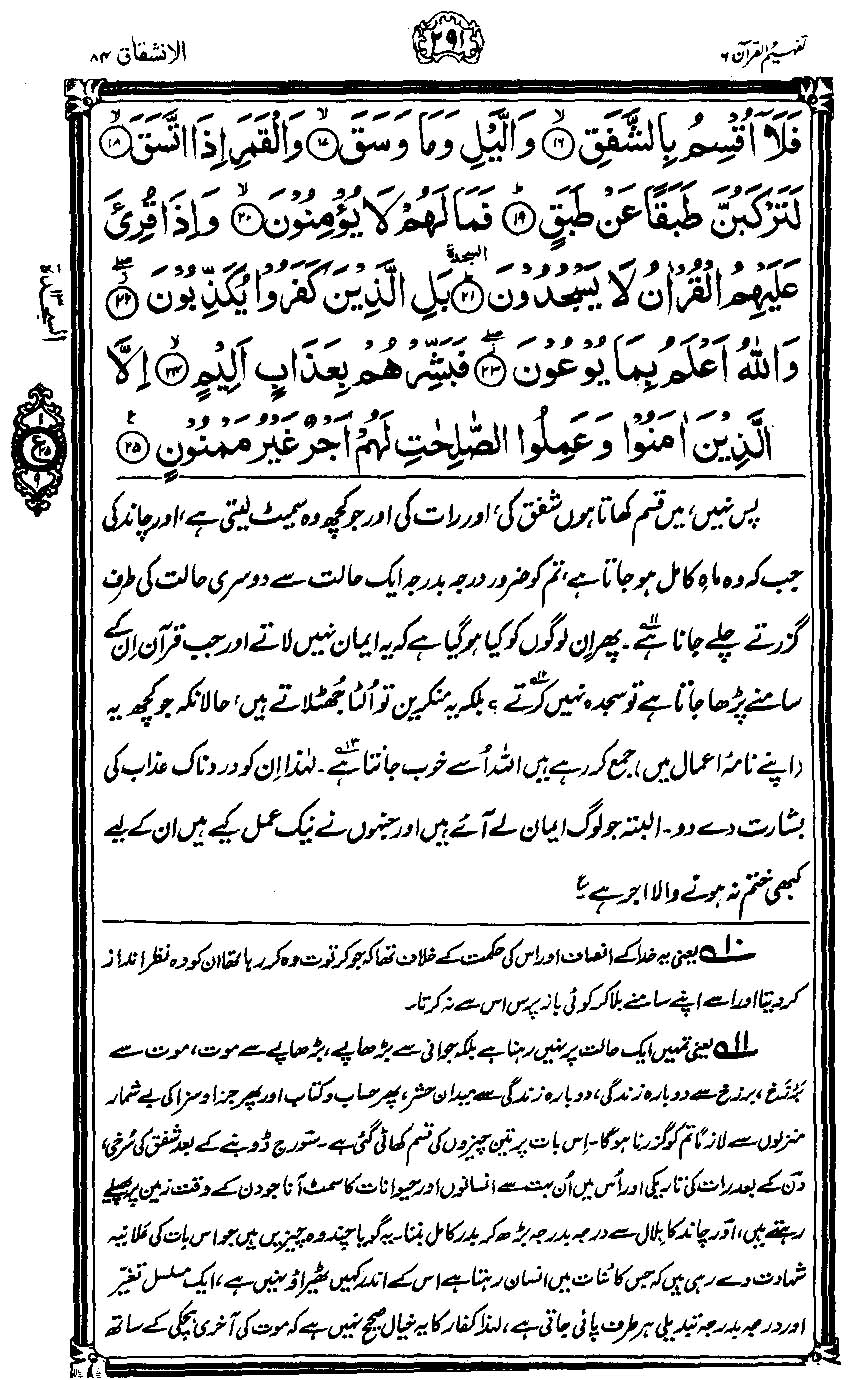 تفہیم القرآن ۶
۲۹۱
الانشقاق ۸۴
فَلَاۤ اُقْسِمُ بِالشَّفَقِ ۙ﴿۱۶﴾ وَالَّيْلِ وَمَا وَسَقَ ۙ﴿۱۷﴾ وَالْقَمَرِ اِذَا اتَّسَقَ ۙ﴿۱۸﴾
لَتَرْكَبُنَّ طَبَقًا عَنْ طَبَقٍ ؕ﴿۱۹﴾ فَمَا لَهُمْ لَا يُؤْمِنُوْنَ ۙ﴿۲۰﴾ وَاِذَا قُرِئَ
عَلَيْهِمُ الْقُرْاٰنُ لَا يَسْجُدُوْنَ ؕ﴿۲۱﴾ السجدة بَلِ الَّذِيْنَ كَفَرُوْا يُكَذِّبُوْنَ ۖ﴿۲۲﴾
وَاللّٰهُ اَعْلَمُ بِمَا يُوْعُوْنَ ۖ﴿۲۳﴾ فَبَشِّرْهُمْ بِعَذَابٍ اَلِيْمٍ ۙ﴿۲۴﴾ اِلَّا
الَّذِيْنَ اٰمَنُوْا وَعَمِلُوا الصّٰلِحٰتِ لَهُمْ اَجْرٌ غَيْرُ مَمْنُوْنٍ ﴿۲۵﴾ ع
السجدة ۱۳
پس نہیں، میں قسم کھاتا ہوں شفق کی، اور رات کی اور جو کچھ وہ سمیٹ لیتی ہے، اور چاند کی
جب کہ وہ ماہِ کامل ہو جاتا ہے، تم کو ضرور درجہ بدرجہ ایک حالت سے دوسری حالت کی طرف
گزرتے چلے جانا ہے۱۱۔ پھر اِن لوگوں کو کیا ہو گیا ہے کہ یہ ایمان نہیں لاتے اور جب قرآن اِن کے
سامنے پڑھا جاتا ہے تو سجدہ نہیں کرتے۱۲؟ بلکہ یہ منکرین تو اُلٹا جُھٹلاتے ہیں، حالانکہ جو کچھ یہ
(اپنے نامۂ اعمال میں) جمع کر رہے ہیں اللہ اُسے خوب جانتا ہے۱۳۔ لہٰذا اِن کو دردناک عذاب کی
بشارت دے دو۔ البتہ جو لوگ ایمان لے آئے ہیں اور جنہوں نے نیک عمل کیے ہیں ان کے لیے
کبھی ختم نہ ہونے والا اجر ہے ع
۱۰ یعنی یہ خدا کے انصاف اور اس کی حکمت کے خلاف تھا کہ جو کرتوت وہ کر رہا تھا ان کو وہ نظر انداز
کر دیتا اور اسے اپنے سامنے بلا کر کوئی باز پرس اس سے نہ کرتا۔
۱۱ یعنی تمہیں ایک حالت پر نہیں رہنا ہے بلکہ جوانی سے بڑھاپے، بڑھاپے سے موت، موت سے
بَرْزَخ، برزخ سے دوبارہ زندگی، دوبارہ زندگی سے میدانِ حشر، پھر حساب و کتاب اور پھر جزا و سزا کی بے شمار
منزلوں سے لازماً تم کو گزرنا ہوگا۔ اِس بات پر تین چیزوں کی قسم کھائی گئی ہے۔ سورج ڈوبنے کے بعد شفق کی سُرخی،
دن کے بعد رات کی تاریکی اور اُس میں اُن بہت سے انسانوں اور حیوانات کا سمٹ آنا جو دن کے وقت زمین پر پھیلے
رہتے ہیں، اور چاند کا ہلال سے درجہ بدرجہ بڑھ کر بدرِ کامل بننا۔ یہ گویا چند وہ چیزیں ہیں جو اس بات کی علانیہ
شہادت دے رہی ہیں کہ جس کائنات میں انسان رہتا ہے اس کے اندر کہیں ٹھیراؤ نہیں ہے، ایک مسلسل تغیّر
اور درجہ بدرجہ تبدیلی ہر طرف پائی جاتی ہے، لہٰذا کفار کا یہ خیال صحیح نہیں ہے کہ موت کی آخری ہچکی کے ساتھ